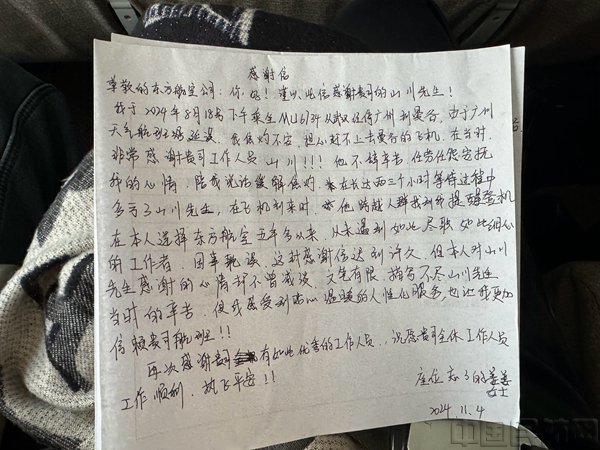 感谢信
尊敬的东方航空公司：你好！谨以此信感谢贵司的山川先生！
我于2024年8月18号下午乘坐MU6134从武汉经停广州到曼谷，由于广州
天气航班延误，我焦灼不安，担心赶不上去曼谷的飞机，在当时
非常感谢贵司工作人员山川！！！他不辞辛苦，任劳任怨安抚
我的心情，陪我说话缓解焦灼，在长达两三个小时等待过程中
多亏了山川先生，在飞机到来时，他跨越人群找到我提醒登机
在本人选择东方航空五年多以来，从未遇到如此尽职如此细心
的工作者，因事耽误，这封感谢信迟到许久，但本人对山川
先生感谢的心情却不曾减淡，文笔有限，描写不尽山川先生
当时的辛苦，使我感受到贴心温暖的人性化服务，也让我更加
信赖贵司航班！！
再次感谢贵司有如此优秀的工作人员，祝愿贵司全体工作人员
工作顺利，执飞平安！！
座位忘了的姜姜
女士
2024.11.4
中国民航网